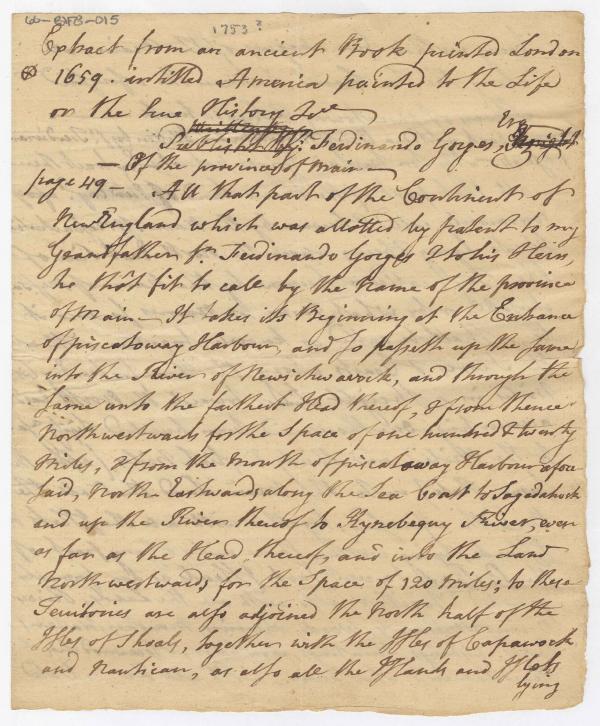 66-BFB-015
1753?
Extract from an ancient Book printed London
1659. intitled America painted to the Life
or the true History &ca
Publisht by: Ferdinando Gorges, Esqr
Of the province of Main —
page 49 — All that part of the Continent of
New England which was allotted by patent to my
Grandfather Sr. Ferdinando Gorges & to his Heirs,
he thôt fit to call by the Name of the province
of Main — It takes its Beginning at the Entrance
of piscataway Harbour, and so passeth up the same
into the River of Newichwavock, and through the
same unto the farthest Head thereof, & from thence
Northwestwards for the Space of one hundred & twenty
Miles, & from the Mouth of piscataway Harbour afore
said, North Eastwards, along the Sea Coast to Sagadahock
and up the River thereof to Kynebequy River, even
as far as the Head thereof, and into the Land
Northwestwards for the Space of 120 Miles; to these
Territories are also adjoined the North half of the
Isles of Shoals, together with the Isles of Capawock
and Nautican, as also all the Islands and Islets
lying